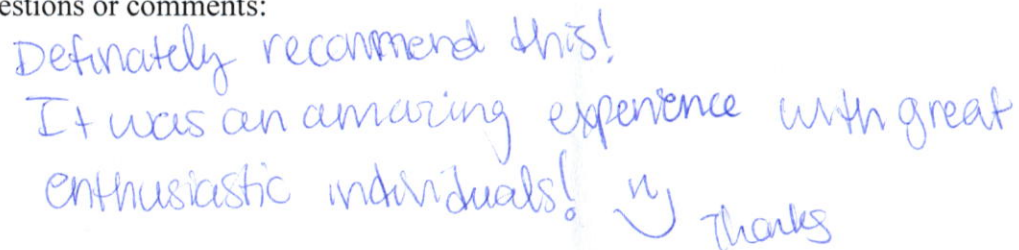 estions or comments:
Definately recommend this!
It was an amazing experience with great
enthusiastic individuals!
Thanks